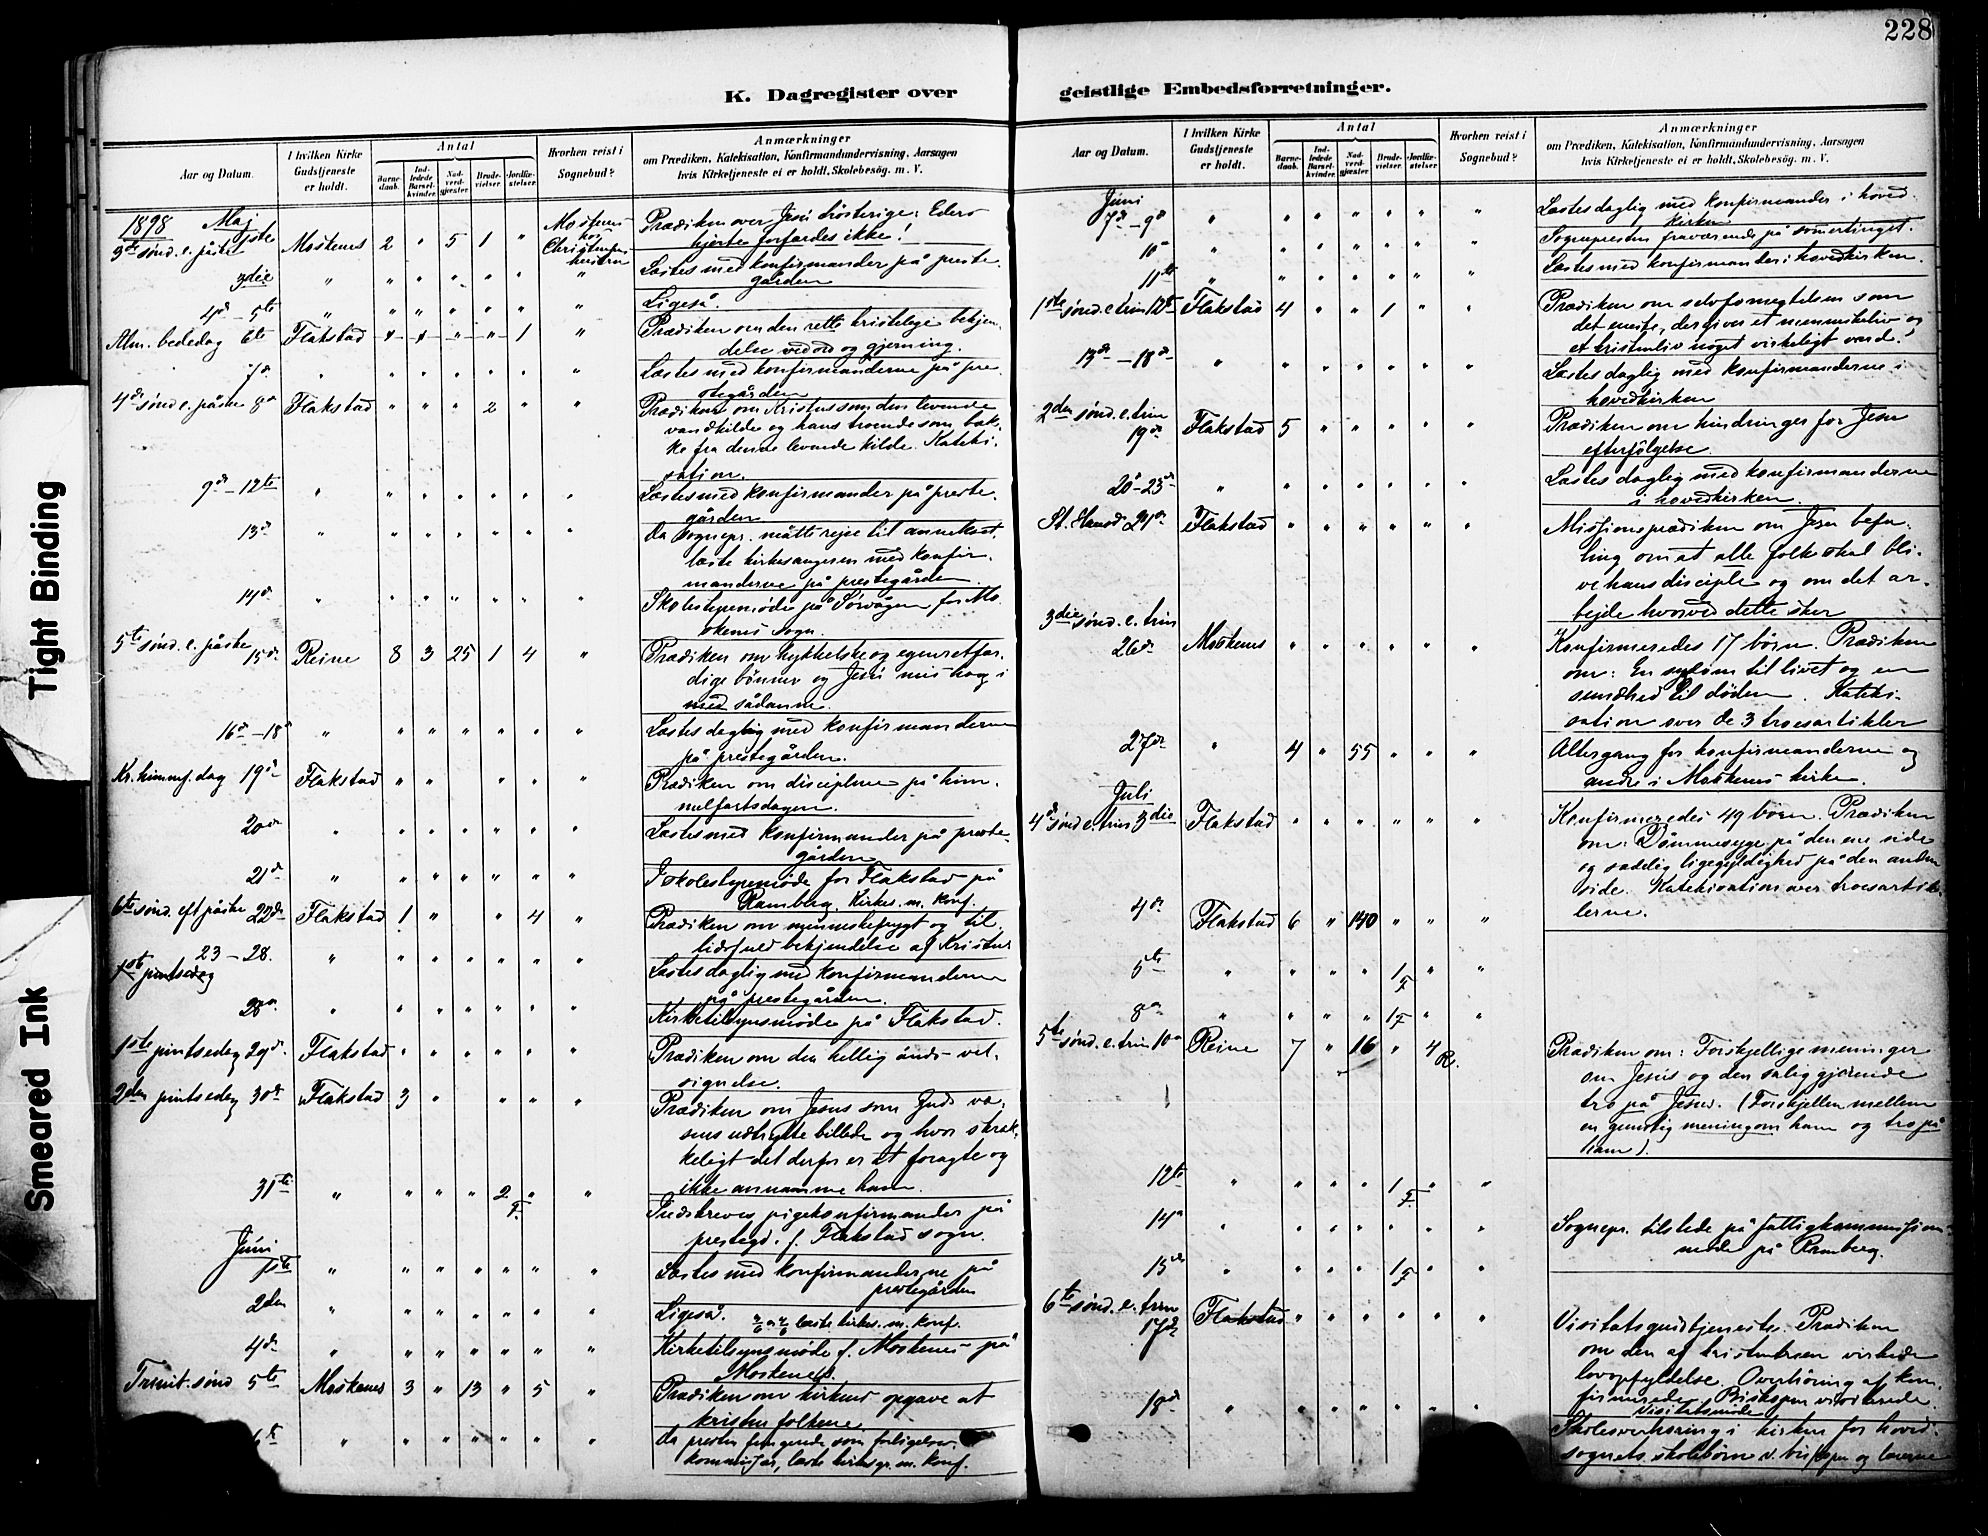 228
Tight Binding
Smeared Ink
K. Dagregister over
Aar og Datum.
I hvilken Kirke Gudstjeneste er holdt.
Antal
Barnedaab.
Indledede Barselkvinder.
Nadverdgjæster
Brudevielser.
Jordfæstelser.
Hvorhen reist i Sognebud?
Anmærkninger
om Prædiken, Katekisation, Konfirmandundervisning, Aarsagen
hvis Kirketjeneste ei er holdt, Skolebesög. m. V.
1898 Maj
3die sønd. e. påske 1ste Moskenes 2 " 5 1 " Moskenes hos Christensens hustru Prædiken over Jesu trösterige: Eders
hjerte forfærdes ikke!
3die " " " " " " " Læstes med konfirmander på preste-
gården
4d - 5te " " " " " " " Ligeså.
Alm. bededag 6te Flakstad " " " " 1 " Prædiken om den rette kristelige bekjen-
delse ved ord og gjerning.
7d " " " " " " " Læstes med konfirmanderne på pre
stegården
4de sønd. e. påske 8d Flakstad " " " 2 " " Prædiken om Kristus som den levende
vandkilde og hans troende som bæk-
ke fra denne levende kilde. Kateki-
sation.
9d - 12te " " " " " " " Læstes med konfirmander på preste-
gården
13d " " " " " " " Da sognepr. måtte rejse til annekset,
læste kirkesangeren med konfir-
manderne på prestegården.
14d " " " " " " " Skolestyremøde på Sørvågen for Mo-
skenes sogn.
5te sønd. e. påske 15d Reine 8 3 25 1 4 " Prædiken om hykkelske og egenretfær-
dige bønner og Jesu mishag i
med sådanne.
16d - 18d " " " " " " " Læstes daglig med konfirmanderne
på prestegården.
Kr. himmf. dag 19d Flakstad " " " " " Prædiken om disciplene på him-
melfartsdagen.
20d " " " " " " " Læstes med konfirmander på preste-
gården
21d " " " " " " " I skolestyremøde for Flakstad på
Ramberg. Kirkes. m. konf.
6te sønd. eft påske 22d Flakstad 1 " " 4 " Prædiken om menneskefrygt og til-
lidsfuld bekjendelse af Kristus
23 - 28. " " " " " " " Læstes daglig med konfirmanderne
på prestegården.
1ste pintsedag
28d " " " " " " " Kirketilsynsmøde på Flakstad.
1ste pintsedag 29d. Flakstad " " " " " " Prædiken om den hellig ånds vel-
signelse.
2den pintsedag 30d Flakstad 3 " " " " Prædiken om Jesus som Guds væ-
sens udtrykte billede og hvor skræk-
keligt det derfor er at foragte og
ikke annamme ham.
31te " " " " 2 F. " " Indskreves pigekonfirmander på
prestegd. f. Flakstad sogn.
Juni
1ste " " " " " " " Læstes med konfirmanderne på
prestegården
2den " " " " " " Ligeså. læste kirkes. m. konf.
4d " " " " " " " Kirketilsynsmøde f. Moskenes på
Moskenes.
Trinit. sønd 5te Moskenes 3 " 13 " 5 " Prædiken om kirkens opgave at
kristne folkene
6te " " " " " " " Da presten fungerede som forligelses-
kommissær, læste kirkesgr. m. konf.
geistlige Embedsforretninger.
Aar og Datum.
I hvilken Kirke Gudstjeneste er holdt.
Antal
Barnedaab.
Indledede Barselkvinder.
Nadverdgjæster
Brudevielser.
Jordfæstelser.
Hvorhen reist i Sognebud?
Anmærkninger
om Prædiken, Katekisation, Konfirmandundervisning, Aarsagen
hvis Kirketjeneste ei er holdt, Skolebesög. m. V.
Juni
7d - 9d " " " " " " " Læstes daglig med konfirmander i hoved-
kirken
10d " " " " " " " Sognepresten fraværende på somertinget.
11te " " " " " " " Læstes med konfirmander i hovedkirken.
1ste sønd. e. trin 12te Flakstad 4 " " 1 " " Prædiken om selvfornegtelsen som
det eneste, der giver et menneskeliv og
et kristenliv noget virkeligt værd.
13d - 18d " " " " " " " Læstes daglig med konfirmanderne i
hovedkirken
2den sønd. e. trin
19d Flakstad 5 " " " " " Prædiken om hindringer for Jesu
efterfølgelse.
20d - 23d " " " " " " " Læstes daglig med konfirmanderne
i hovedkirken.
St. Hansd. 24d Flakstad " " " " " " Missionsprædiken om Jesu befa-
ling om at alle folk skal bli-
ve hans disciple og om det ar-
bejde hvorved dette sker
3die sønd. e. trin
26d Moskenes " " " " " " Konfirmeredes 17 børn. Prædiken
om: En sygdom til livet og en
sundhed til døden. Kateki-
sation over de 3 troesartikler
27d " 4 " 55 " " " Altergang for konfirmanderne og
andre i Moskenes kirke.
Juli
4d sønd e. trin 3die Flakstad " " " " " " Konfirmeredes 49 børn. Prædiken
om: Dømmesyge på den ene side
og sædelig ligegyldighed på den anden
side. Katekisation over troesartik-
lerne.
4d Flakstad 6 " 140 " " "
5te " " " " 1 F " "
8d " " " " 1 F " "
5te sønd. e. trin 10d Reine 7 " 16 " 4 R. Prædiken om: Forskjellige meninger
om Jesus og den saliggjørende
tro på Jesus. (Forskjellen mellem
en gunstig mening om ham og tro på
ham).
12te " " " " 1 F " "
14d " " " " " " " Sognepr. tilstede på fattigkommissions-
møde på Ramberg.
15d " " " " 1 F " "
6te sønd. e. trin
17d Flakstad " " " " " " Visitatsgudstjeneste. Prædiken
om den af kristentroen virkede
lovopfyldelse. Overhøring af kon-
firmerede. Biskopen visiterede.
Visitatsmøde
18d " " " " " " " Skoleoverhøring i kirken for hoved-
sognets skolebørn v. bispen og lærerne